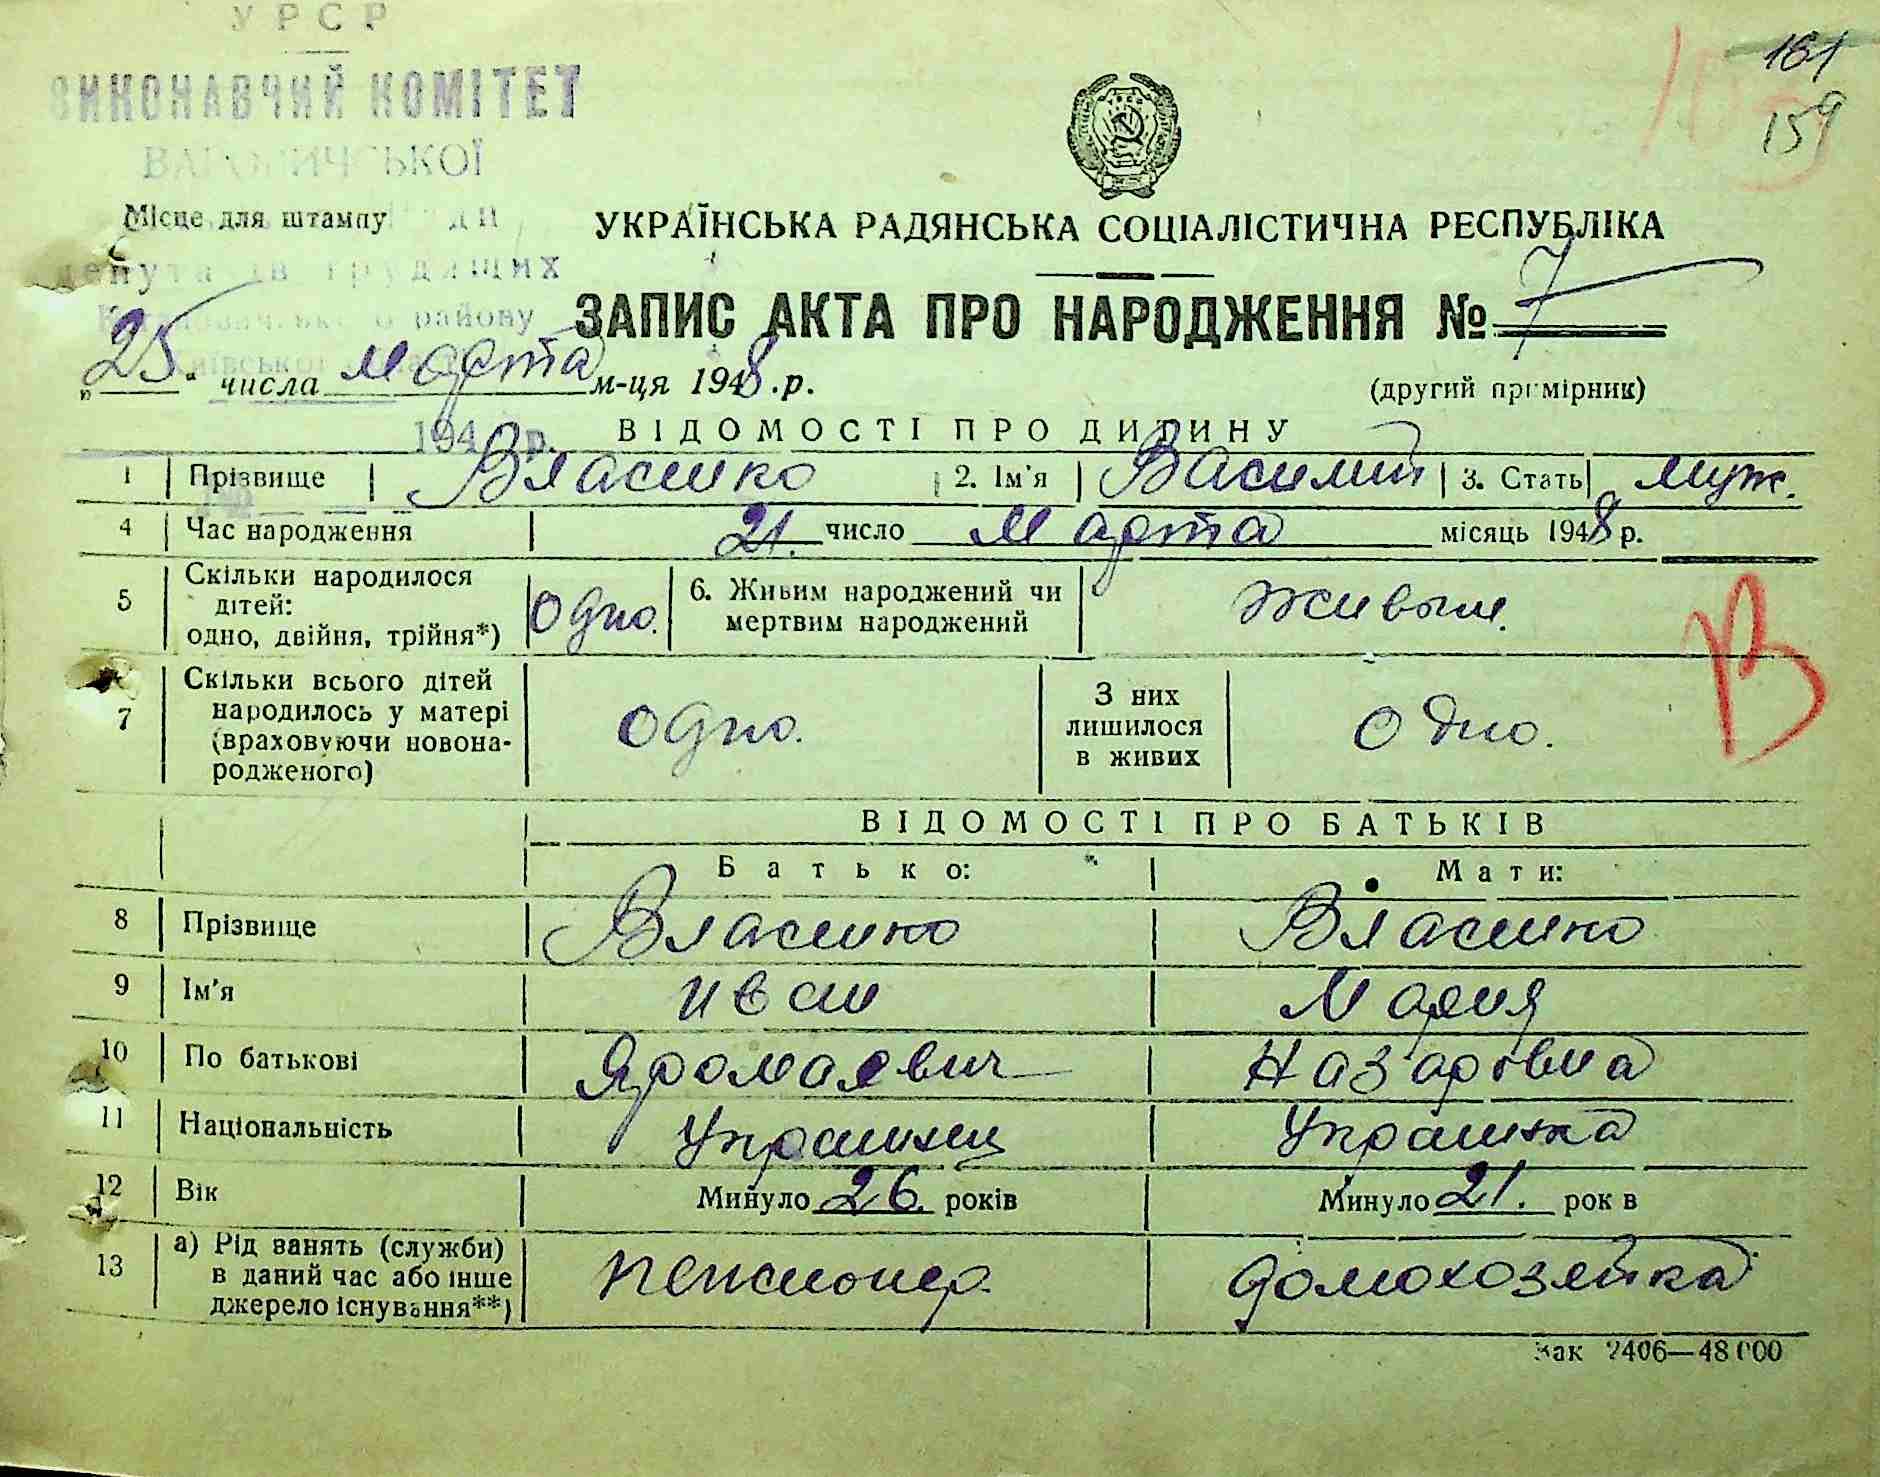 УРСР
ВИКОНАВЧИЙ КОМІТЕТ
161
159
Місце для штампу
депутатів трудящих
району
УКРАЇНСЬКА РАДЯНСЬКА СОЦІАЛІСТИЧНА РЕСПУБЛІКА
ЗАПИС АКТА ПРО НАРОДЖЕННЯ № 7
„25" числа марта м-ця 1948.р.
(другий примірник)
194 р.
ВІДОМОСТІ ПРО ДИТИНУ
1 Прізвище Власенко 2. Ім'я Василий 3. Стать муж.
4 Час народження 21. число Марта місяць 1948 р.
5 Скільки народилося дітей: одно, двійня, трійня*) одно. 6. Живим народжений чи мертвим народжений живым.
В
7 Скільки всього дітей народилось у матері (враховуючи новонародженого) одно. З них лишилося в живих одно.
ВІДОМОСТІ ПРО БАТЬКІВ
Батько: Мати:
8 Прізвище Власенко Власенко
9 Ім'я Иван Мария
10 По батькові Назаровна
11 Національність Украинец Украинка
12 Вік Минуло 26. років Минуло 21. років
13 а) Рід занять (служби) в даний час або інше джерело існування**) пенсионер. домохозяйка
Зак 2406—48000